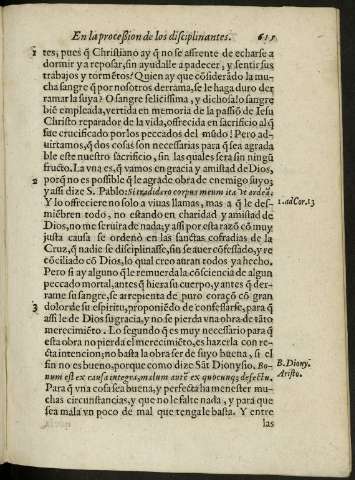 En la procession de los disciplinantes. 615
1 tes, pues q̃ Christiano ay q̃ no se afrente de echarse a
dormir y a reposar, sin ayudalle a padecer, y sentir sus
trabajos y tormẽtos? Quien ay que cõsiderãdo la mu-
cha sangre q̃ por nosotros derrama, se le haga duro der
ramar la suya? O sangre felicissima, y dichosa! o sangre
biẽ empleada, vertida en memoria de la passiõ de Iesu
Christo reparador de la vida, offrecida en sacrificio al q̃
fue crucificado por los peccados del mũdo! Pero ad-
uirtamos, q̃ dos cosas son necessarias para q̃ sea agrada
ble este nuestro sacrificio, sin las quales será sin ningũ
fructo. La vna es, q̃ vamos en gracia y amistad de Dios,
porq̃ no es possible q̃ le agrade obra de enemigo suyo;
2 y assi dize S. Pablo: Si tradidero corpus meum ita vt ardeã. 1. ad Cor. 13
Y lo offreciere no solo a viuas llamas, mas a q̃ le des-
miẽbren todo, no estando en charidad y amistad de
Dios, no me seruira de nada; y assi por esta razõ cõ muy
justa causa se ordenò en las sanctas cofradias de la
Cruz, q̃ nadie se disciplinasse, sin se auer cõfessado, y re
cõciliado cõ Dios, lo qual creo auran todos ya hecho.
Pero si ay alguno q̃ le remuerda la cõsciencia de algun
peccado mortal, antes q̃ hiera su cuerpo, y antes q̃ der-
rame su sangre, se arrepienta de puro coraçõ cõ gran
3 dolor de su espiritu, proponiẽdo de confessarse, para q̃
assi le de Dios su gracia, y no se pierda vna obra de tãto
merecimiẽto. Lo segundo q̃ es muy necessario para q̃
esta obra no pierda el merecimiẽto, es hazerla con re-
cta intencion; no basta la obra ser de suyo buena, si el
fin no es bueno, porque como dize Sãt Dionysio, Bo- B. Diony.
num est ex causa integra, malum autẽ ex quocunq; defectu. Aristo.
Para q̃ vna cosa sea buena, y perfecta ha menester mu-
chas circunstancias, y que no le falte nada, y para que
sea mala vn poco de mal que tenga le basta. Y entre
las